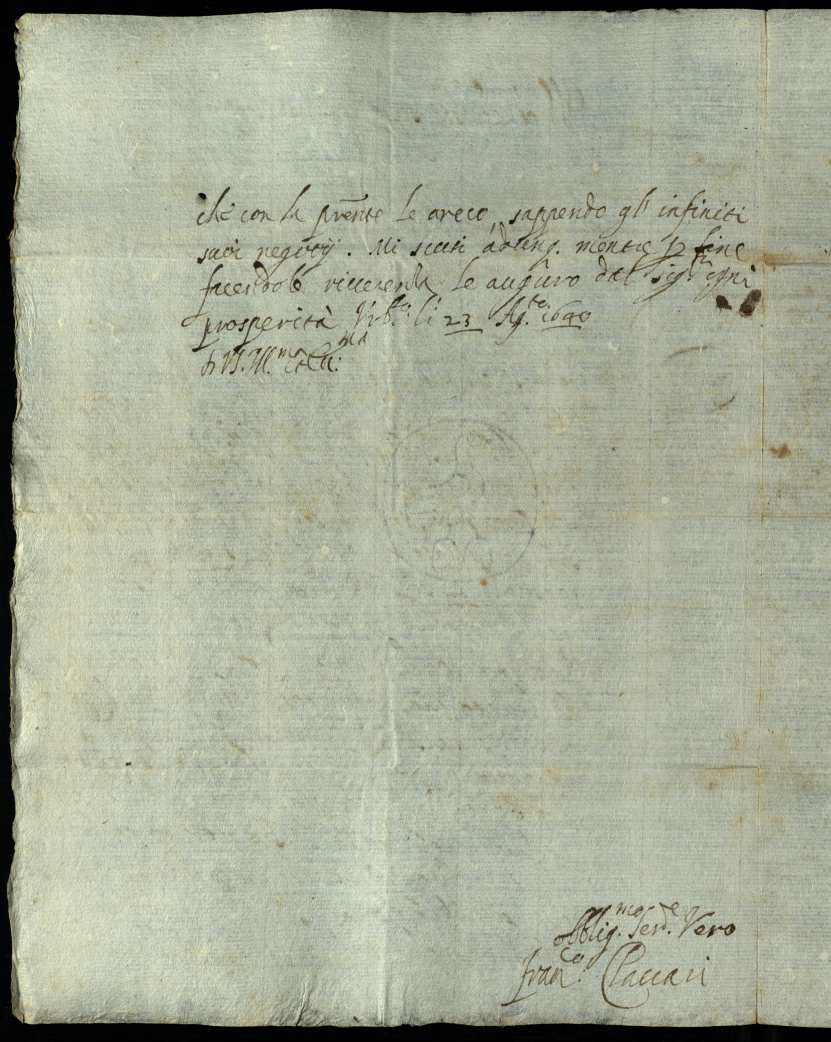 che con la prēnte le areco, sappendo gl' infiniti
suoi negotij. Mi scusi adunq. mentre p fine
facendole riverenza le auguro dal Sig.re ogni
prosperità Urb.o li 23 Ag.to 1640
di V.S. Ill.ma
Obblig.mo Ser.re Vero
Fran.co